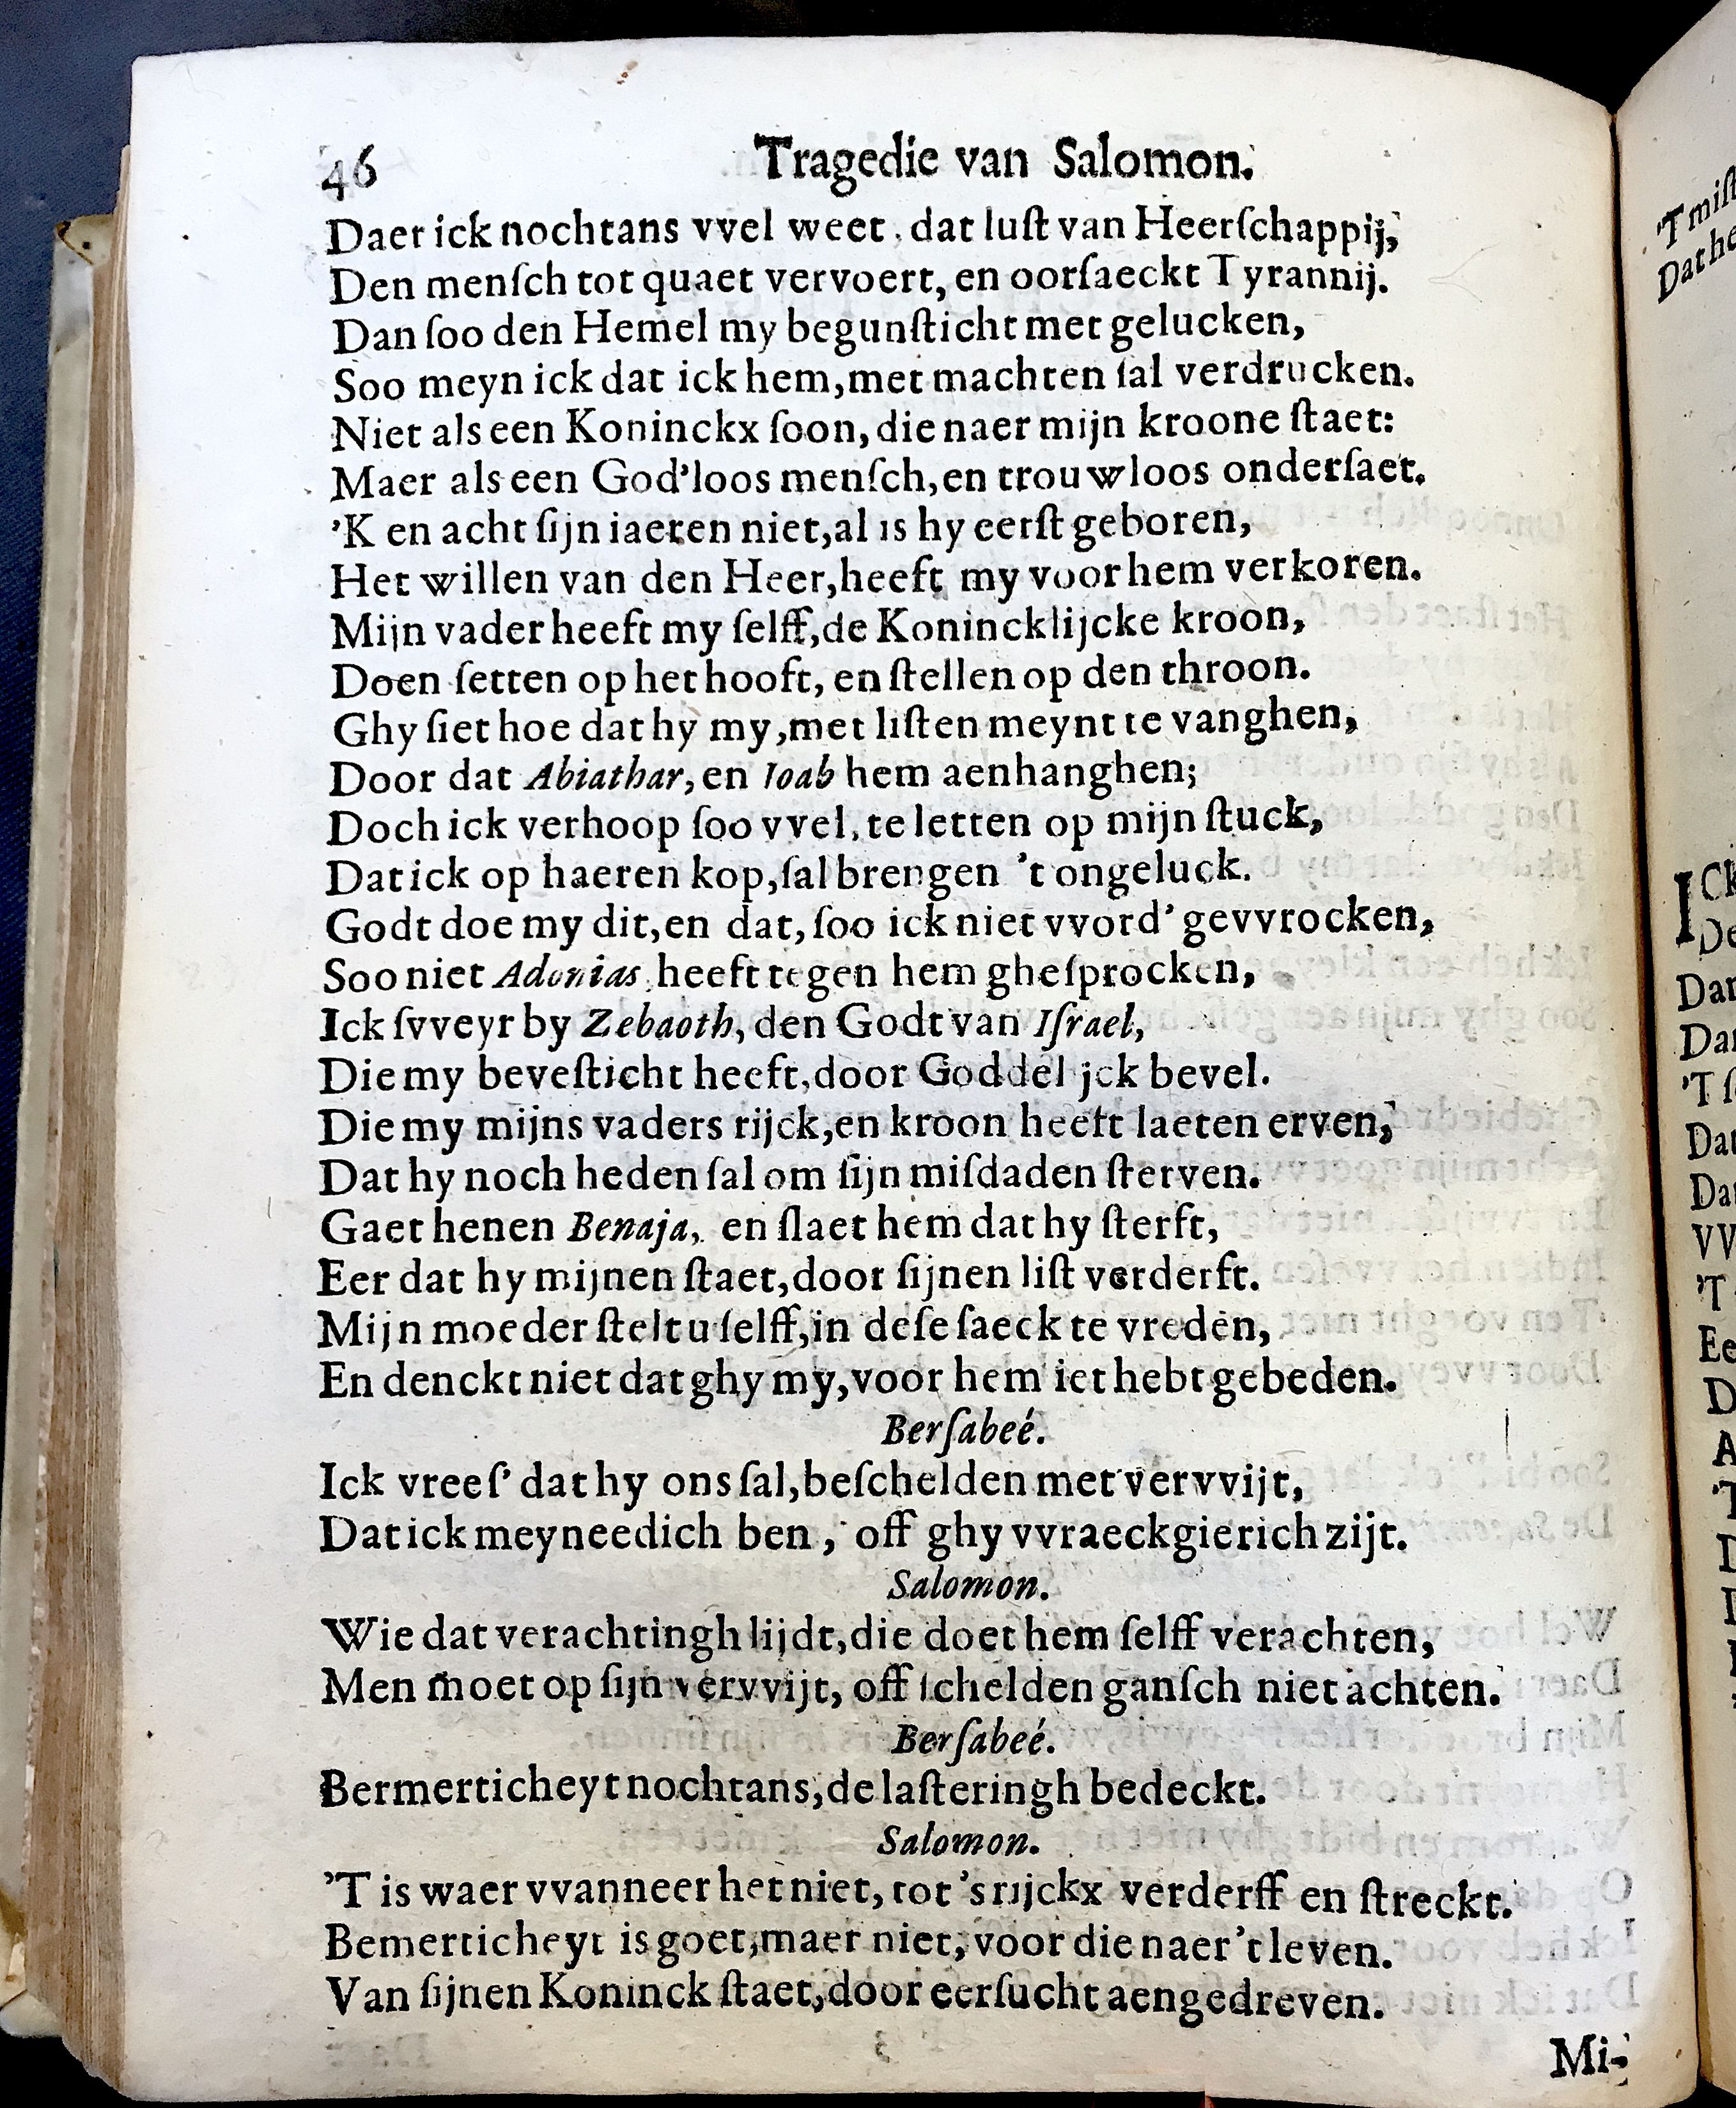 46 Tragedie van Salomon.
Daer ick nochtans vvel weet, dat luſt van Heerſchappij,
Den menſch tot quaet vervoert, en oorſaeckt Tyrannij.
Dan ſoo den Hemel my begunſticht met gelucken,
Soo meyn ick dat ick hem, met machten ſal verdrucken.
Niet als een Koninckx ſoon, die naer mijn kroone ſtaet:
Maer als een God'loos menſch, en trouwloos onderſaet.
'K en acht ſijn iaeren niet, al is hy eerſt geboren,
Het willen van den Heer, heeft my voor hem verkoren.
Mijn vader heeft my ſelff, de Konincklijcke kroon,
Doen ſetten op het hooft, en ſtellen op den throon.
Ghy ſiet hoe dat hy my, met liſten meynt te vanghen,
Door dat Abiathar, en Ioab hem aenhanghen;
Doch ick verhoop ſoo vvel, te letten op mijn ſtuck,
Dat ick op haeren kop, ſal brengen 't ongeluck.
Godt doe my dit, en dat, ſoo ick niet vvord' gevvrocken,
Soo niet Adonias heeft tegen hem gheſprocken,
Ick ſvveyr by Zebaoth, den Godt van Iſrael,
Die my beveſticht heeft, door Goddel jck bevel.
Die my mijns vaders rijck, en kroon heeft laeten erven,
Dat hy noch heden ſal om ſijn miſdaden ſterven.
Gaet henen Benaja, en ſlaet hem dat hy ſterft,
Eer dat hy mijnen ſtaet, door ſijnen liſt verderft.
Mijn moeder ſtelt u ſelff, in deſe ſaeck te vreden,
En denckt niet dat ghy my, voor hem iet hebt gebeden.
Berſabeé.
Ick vreeſ' dat hy ons ſal, beſchelden met vervvijt,
Dat ick meyneedich ben, off ghy vvraeckgierich zijt.
Salomon.
Wie dat verachtingh lijdt, die doet hem ſelff verachten,
Men moet op ſijn vervvijt, off ſchelden ganſch niet achten.
Berſabeé.
Bermerticheyt nochtans, de laſteringh bedeckt.
Salomon.
'T is waer vvanneer het niet, tot 's rijckx verderff en ſtreckt.
Bemerticheyt is goet, maer niet, voor die naer 't leven.
Van ſijnen Koninck ſtaet, door eerſucht aengedreven.
Mi-